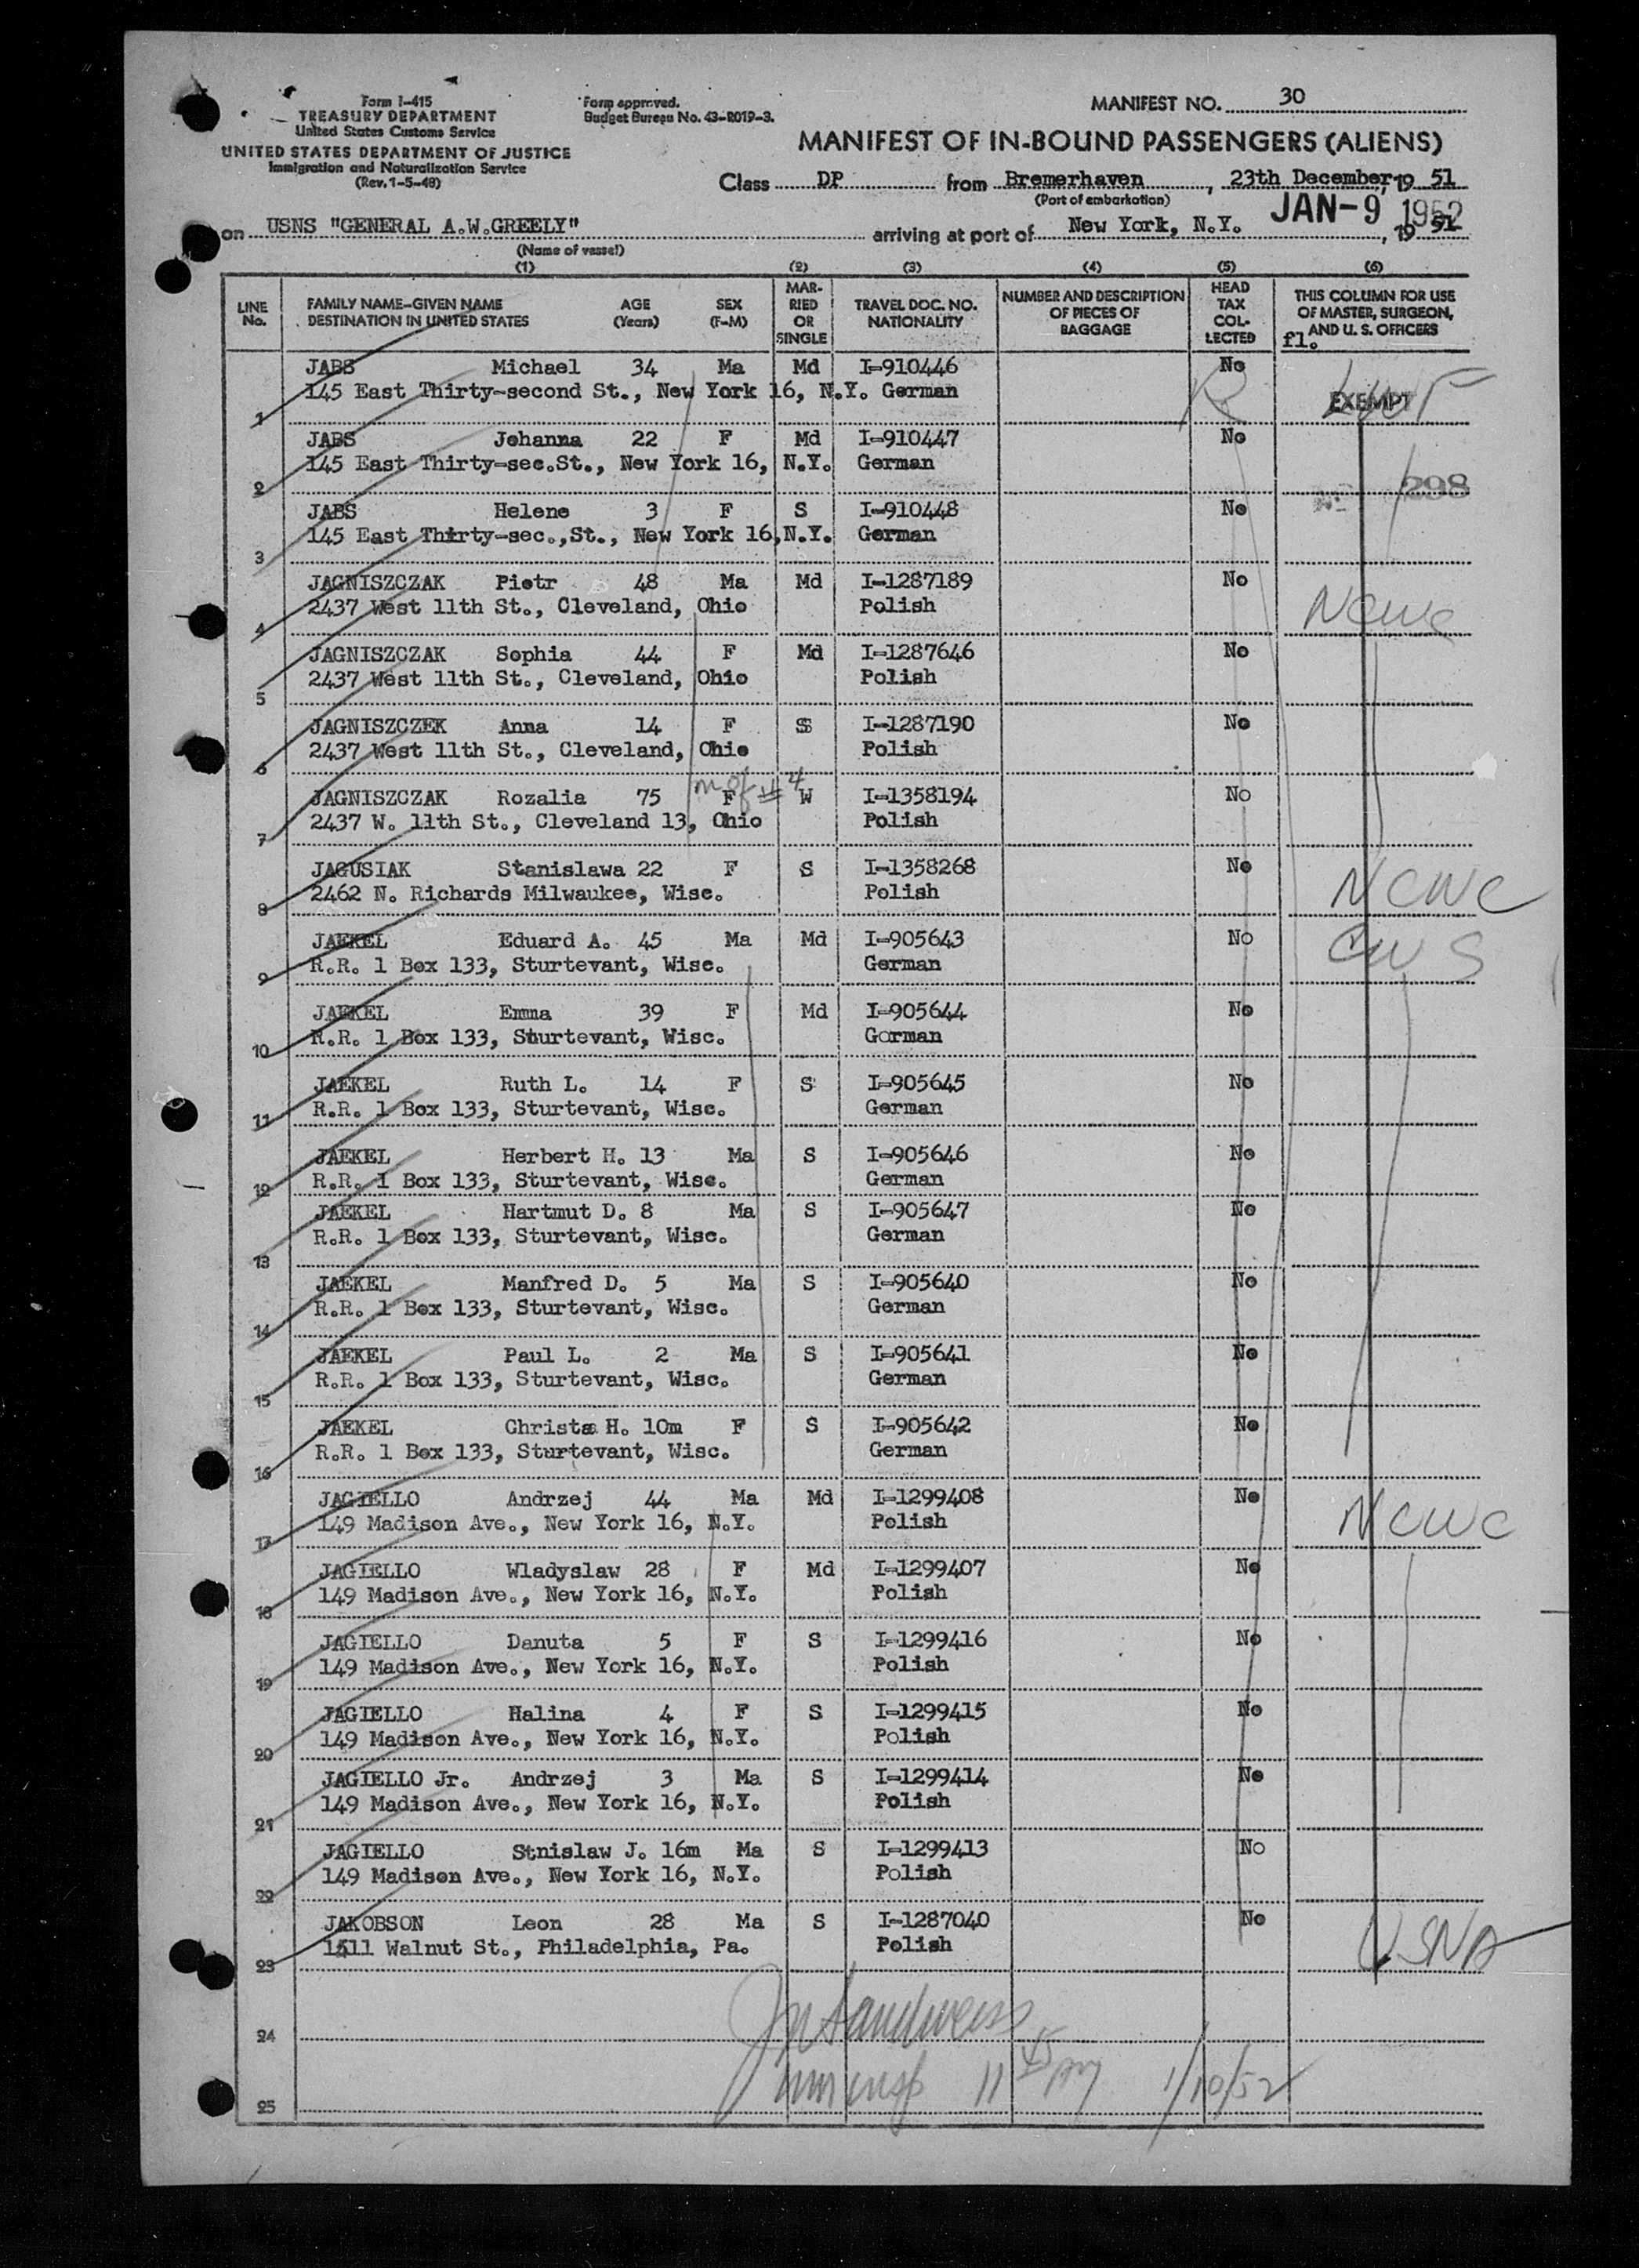 Form I-415
TREASURY DEPARTMENT
United States Customs Service
UNITED STATES DEPARTMENT OF JUSTICE
Immigration and Naturalization Service
(Rev. 1-5-48)
Form approved.
Budget Bureau No. 43-R019-3.
MANIFEST NO. 30
MANIFEST OF IN-BOUND PASSENGERS (ALIENS)
Class DP from Bremerhaven, 23th December, 19 51
(Port of embarkation)
JAN-9 1952
on USNS "GENERAL A.W.GREELY" arriving at port of New York, N.Y. , 19 51
(Name of vessel)
(1) (2) (3) (4) (5) (6)
LINE No. FAMILY NAME-GIVEN NAME DESTINATION IN UNITED STATES AGE (Years) SEX (F-M) MARRIED OR SINGLE TRAVEL DOC. NO. NATIONALITY NUMBER AND DESCRIPTION OF PIECES OF BAGGAGE HEAD TAX COLLECTED THIS COLUMN FOR USE OF MASTER, SURGEON, AND U. S. OFFICERS
fl.
JABS Michael 34 Ma Md I-910446 No
1 145 East Thirty-second St., New York 16, N.Y. German EXEMPT
JABS Johanna 22 F Md I-910447 No
2 145 East Thirty-sec.St., New York 16, N.Y. German 298
JABS Helene 3 F S I-910448 No
3 145 East Thirty-sec.,St., New York 16,N.Y. German
JAGNISZCZAK Piotr 48 Ma Md I-1287189 No
4 2437 West 11th St., Cleveland, Ohio Polish NCWC
JAGNISZCZAK Sophia 44 F Md I-1287646 No
5 2437 West 11th St., Cleveland, Ohio Polish
JAGNISZCZEK Anna 14 F S I-1287190 No
6 2437 West 11th St., Cleveland, Ohio Polish
m of #4
JAGNISZCZAK Rozalia 75 F W I-1358194 No
7 2437 W. 11th St., Cleveland 13, Ohio Polish
JAGUSIAK Stanislawa 22 F S I-1358268 No
8 2462 N. Richards Milwaukee, Wisc. Polish NCWC
JAEKEL Eduard A. 45 Ma Md I-905643 No CWS
9 R.R. 1 Box 133, Sturtevant, Wisc. German
JAEKEL Emma 39 F Md I-905644 No
10 R.R. 1 Box 133, Sturtevant, Wisc. German
JAEKEL Ruth L. 14 F S I-905645 No
11 R.R. 1 Box 133, Sturtevant, Wisc. German
JAEKEL Herbert H. 13 Ma S I-905646 No
12 R.R. 1 Box 133, Sturtevant, Wisc. German
JAEKEL Hartmut D. 8 Ma S I-905647 No
13 R.R. 1 Box 133, Sturtevant, Wisc. German
JAEKEL Manfred D. 5 Ma S I-905640 No
14 R.R. 1 Box 133, Sturtevant, Wisc. German
JAEKEL Paul L. 2 Ma S I-905641 No
15 R.R. 1 Box 133, Sturtevant, Wisc. German
JAEKEL Christa H. 10m F S I-905642 No
16 R.R. 1 Box 133, Sturtevant, Wisc. German
JAGIELLO Andrzej 44 Ma Md I-1299408 No NCWC
17 149 Madison Ave., New York 16, N.Y. Polish
JAGIELLO Wladyslaw 28 F Md I-1299407 No
18 149 Madison Ave., New York 16, N.Y. Polish
JAGIELLO Danuta 5 F S I-1299416 No
19 149 Madison Ave., New York 16, N.Y. Polish
JAGIELLO Halina 4 F S I-1299415 No
20 149 Madison Ave., New York 16, N.Y. Polish
JAGIELLO Jr. Andrzej 3 Ma S I-1299414 No
21 149 Madison Ave., New York 16, N.Y. Polish
JAGIELLO Stnislaw J. 16m Ma S I-1299413 No
22 149 Madison Ave., New York 16, N.Y. Polish
JAKOBSON Leon 28 Ma S I-1287040 No
23 1511 Walnut St., Philadelphia, Pa. Polish USNA
24
1/10/52
25